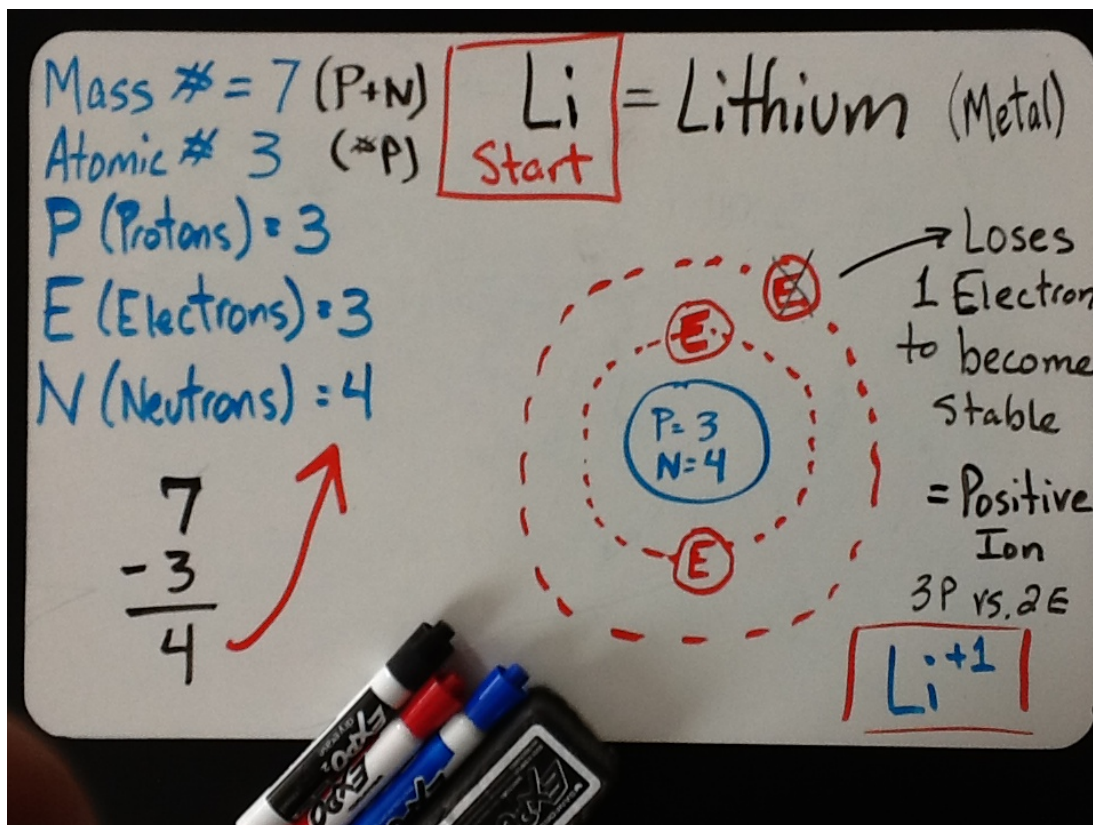 Mass # = 7 (P+N)
Atomic # 3 (#P)
P (Protons) = 3
E (Electrons) = 3
N (Neutrons) = 4
7
- 3
4
Li
Start
= Lithium (Metal)
E
E
P = 3
N = 4
E
Loses
1 Electron
to become
Stable
= Positive
Ion
3P vs. 2E
Li+1
EXPO
EXPO
EXPO